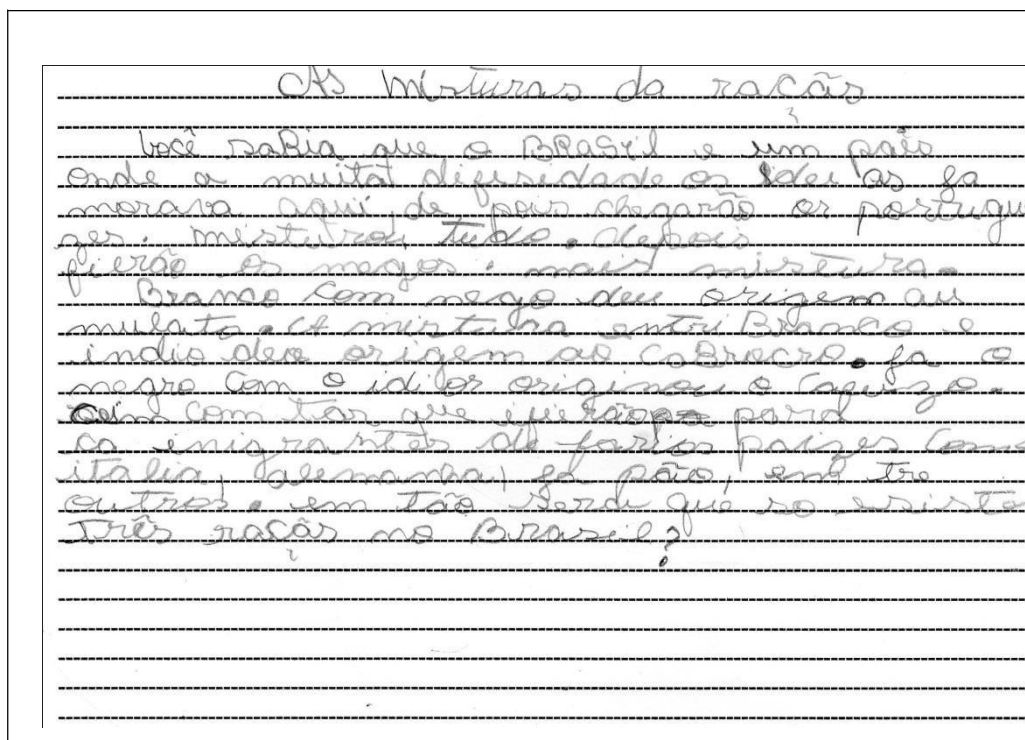 As misturas da raçãs
Você saBia que o BRASil e um paìs
onde a muita difersidade os idei as ja
morava aqui de pois chegarão os portugu
zes. misturou tudo. depois
fierão os negos. mais mistura.
Branco com nego deu origem au
mulato. A mistura entri Branco e
indio deu origem ao caBrocro. ja o
negro com o idi or originou o cafuzo.
cem com tar que vierão pard
ca enigrantes de farios paizes como
italia, alemanha, ja pão, em tre
outros. em tão será que so esiste
três raçãs no Brasil?